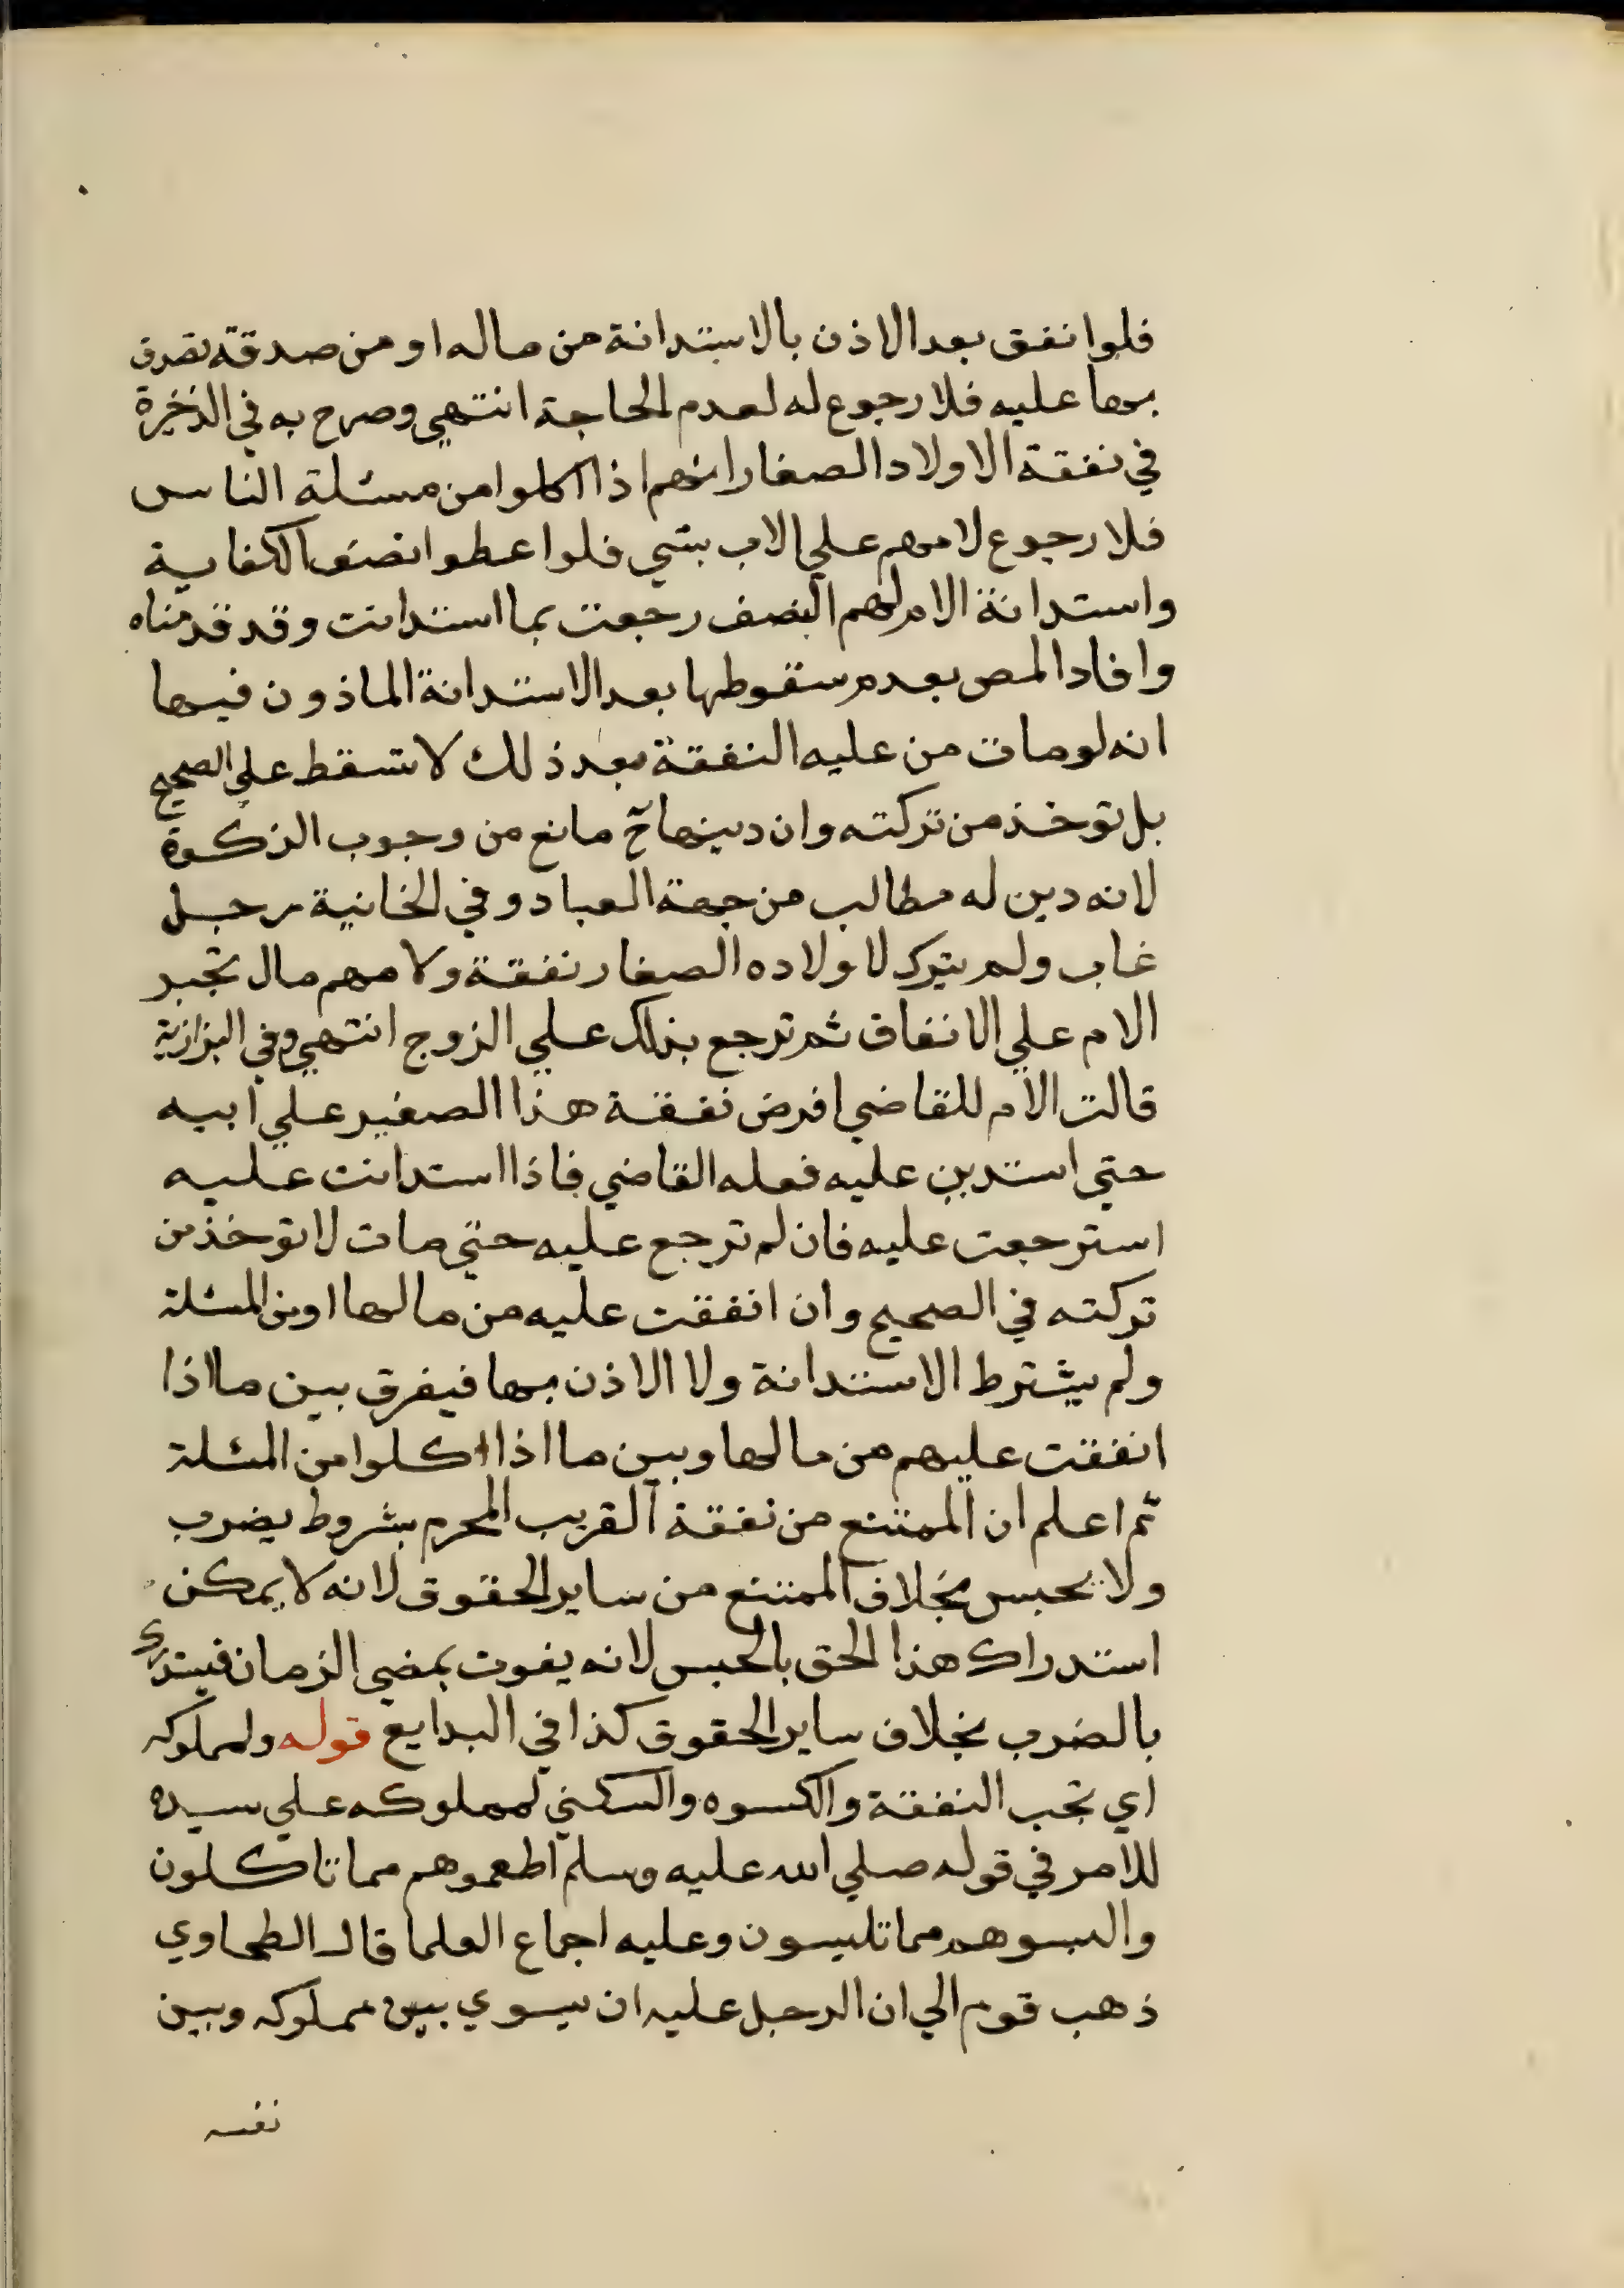 فلوا نفق بعد الاذن بالاستدانة من ماله او من صدقة تصدق
بها عليه فلا رجوع له لعدم الحاجة انتهي وصرح به في الذخيرة
في نفقة الاولاد الصغار انهم اذا اكلوا من مسئلة الناس
فلا رجوع لامهم علي الاب بشي فلو اعطوا نصف الكفاية
واستدانة الام لهم النصف رجعت بما استدانت وقد قدمناه
وافاد المص بعدم سقوطها بعد الاستدانة الماذون فيها
انه لو مات من عليه النفقة بعد ذلك لا تسقط علي الصحيح
بل توخذ من تركته وان دينها ح مانع من وجوب الزكوة
لانه دين له مطالب من جهة العباد وفي الخانية رجل
غاب ولم يترك لاولاده الصغار نفقة ولامهم مال تجبر
الام علي الانفاق ثم ترجع بذلك علي الزوج انتهي وفي البزازية
قالت الام للقاضي افرض نفقة هذا الصغير علي ابيه
حتي استدين عليه فعله القاضي فاذا استدانت عليه
استرجعت عليه فان لم ترجع عليه حتي مات لا توخذ من
تركته في الصحيح وان انفقت عليه من مالها او من المسئلة
ولم يشترط الاستدانة ولا الاذن بها فيفرق بين ما اذا
انفقت عليهم من مالها وبين ما اذا اكلوا من المسئلة
ثم اعلم ان الممتنع من نفقة القريب المحرم بشروط يضرب
ولا يحبس بخلاف الممتنع من ساير الحقوق لانه لا يمكن
استدراك هذا الحق بالحبس لانه يفوت بمضي الزمان فيستدرك
بالضرب بخلاف ساير الحقوق كذا في البدايع قوله ولمملوكه
اي تجب النفقة والكسوه والسكني لمملوكه علي سيده
للامر في قوله صلي الله عليه وسلم اطعموهم مما تاكلون
والبسوهم مما تلبسون وعليه اجماع العلما قال الطحاوي
ذهب قوم الي ان الرجل عليه ان يسوي بين مملوكه وبين
نفسه